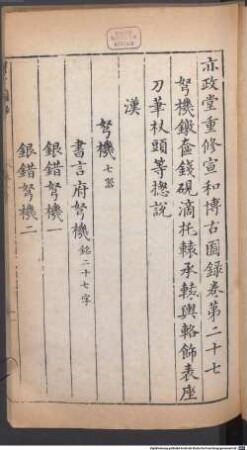 亦政堂重修宣和博古圖録卷第二十七
弩機鐓奩錢硯滴托轅承轅輿輅飾表座
刀筆杖頭等總說
漢
弩機七器
書言府弩機銘二十七字
銀錯弩機一
銀錯弩機二